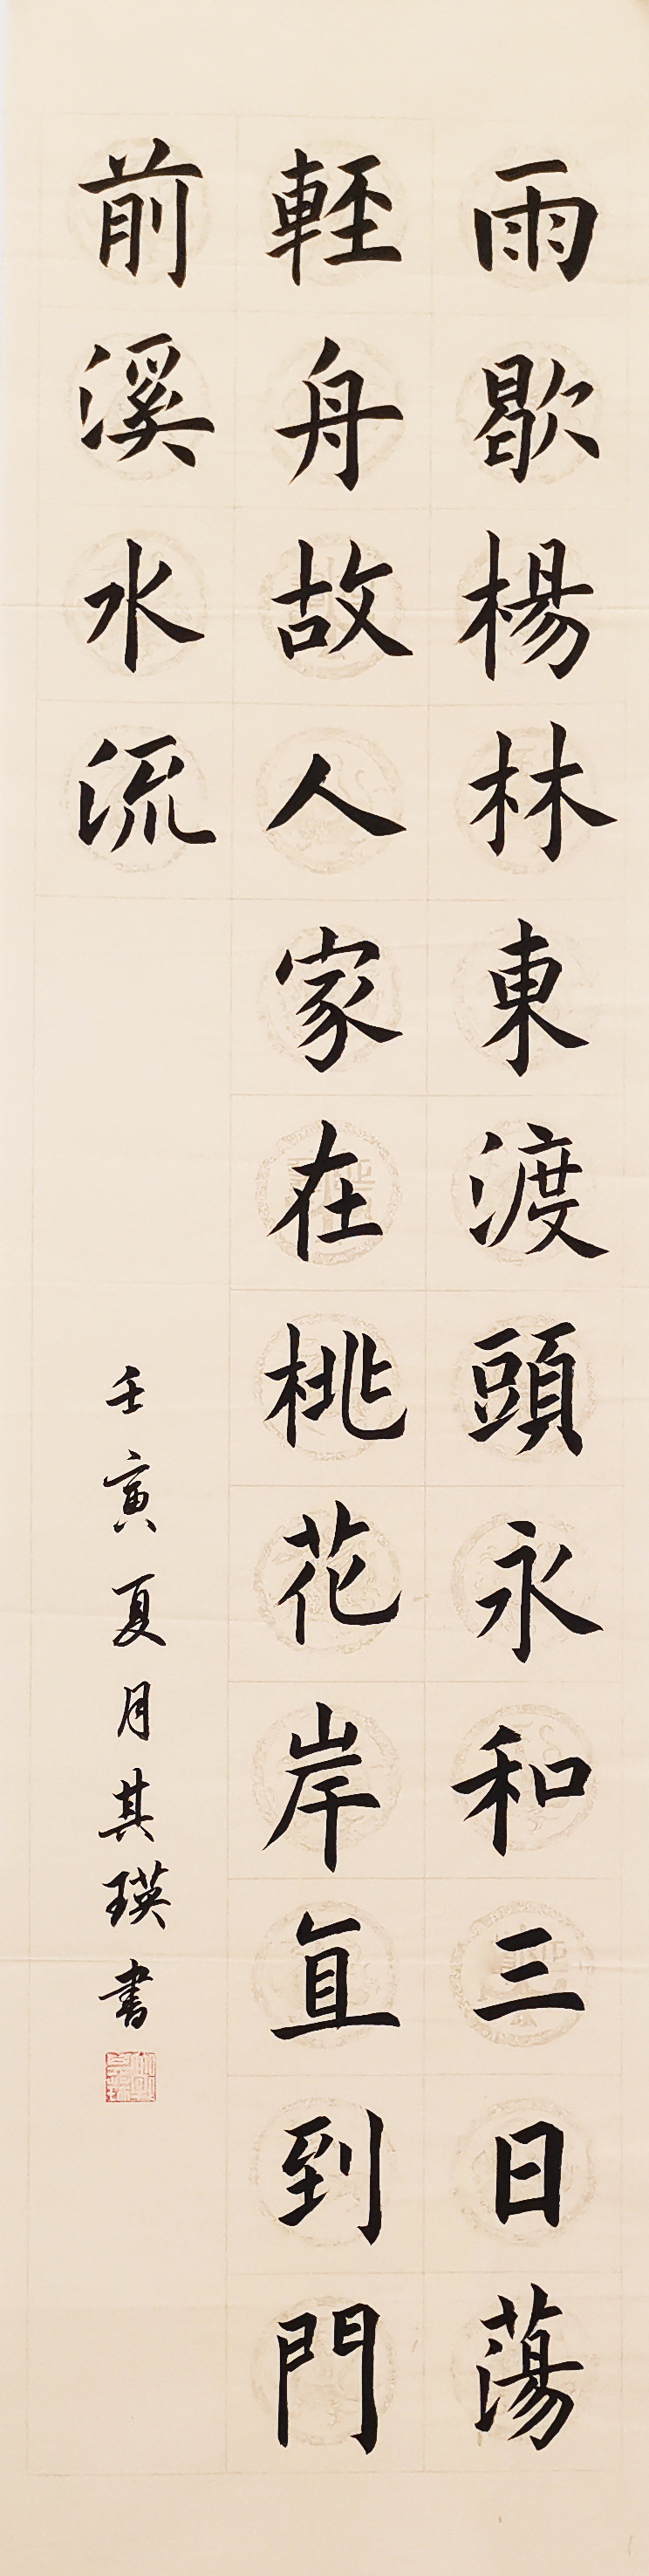 雨歇楊林東渡頭永和三日蕩
輕舟故人家在桃花岸直到門
前溪水流
壬寅夏月其瑛書